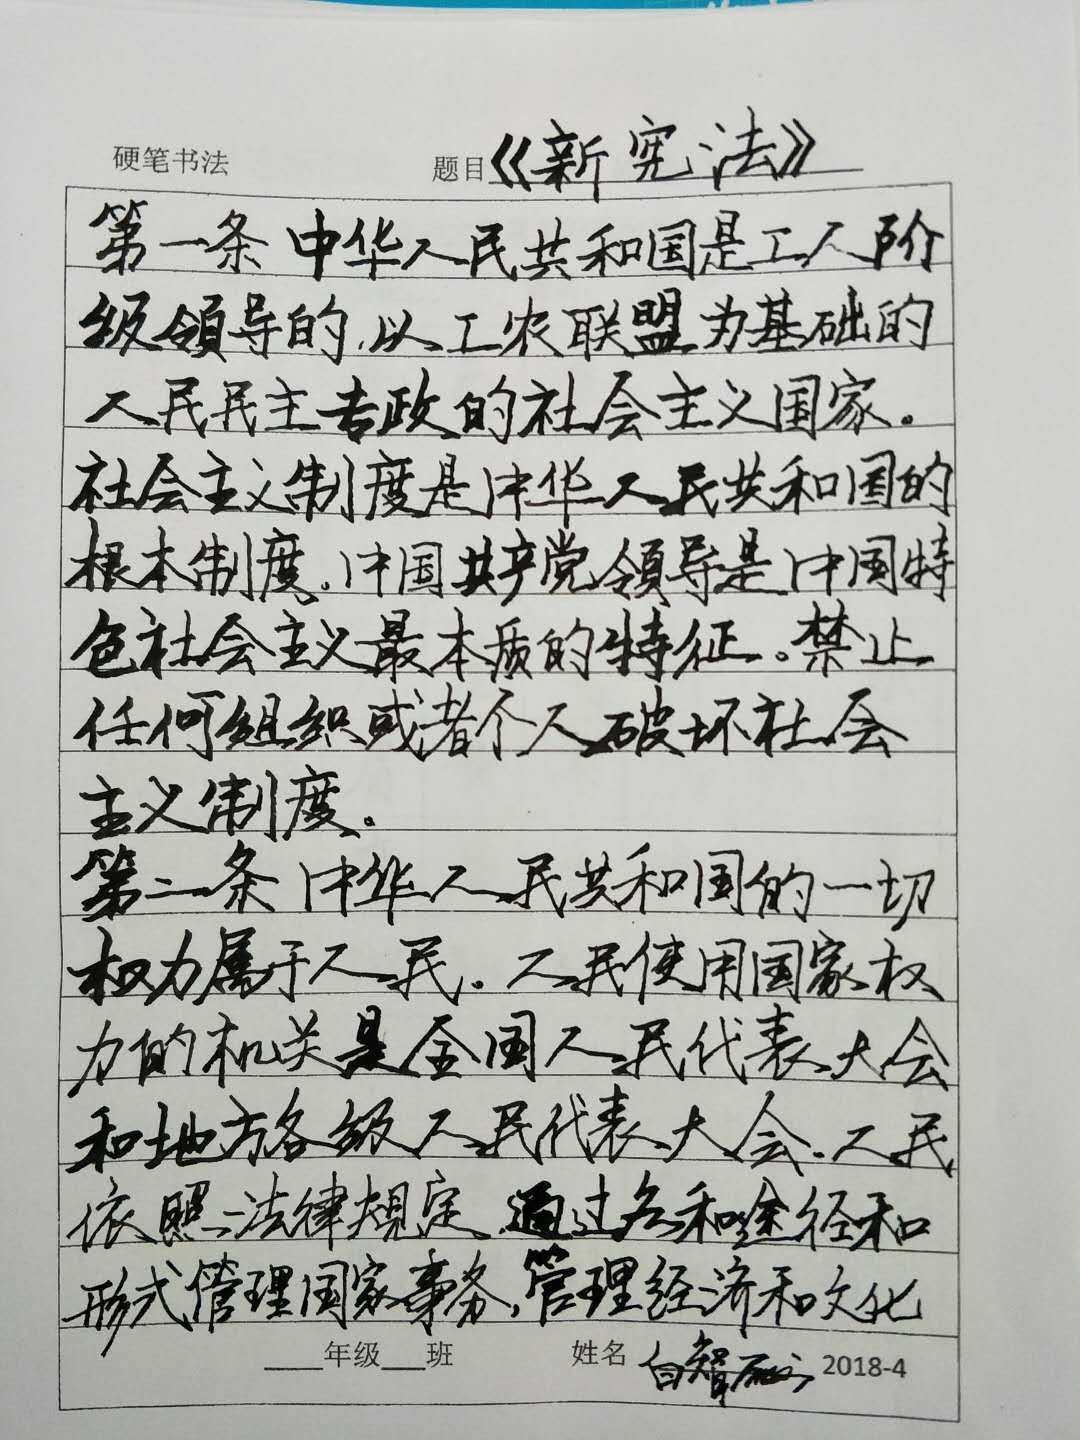 硬笔书法 题目《新宪法》
第一条 中华人民共和国是工人阶
级领导的,以工农联盟为基础的
人民民主专政的社会主义国家。
社会主义制度是中华人民共和国的
根本制度。中国共产党领导是中国特
色社会主义最本质的特征。禁止
任何组织或者个人破坏社会
主义制度。
第二条 中华人民共和国的一切
权力属于人民。人民使用国家权
力的机关是全国人民代表大会
和地方各级人民代表大会。人民
依照法律规定,通过各和途径和
形式管理国家事务,管理经济和文化
____年级___班 姓名 白智 2018-4